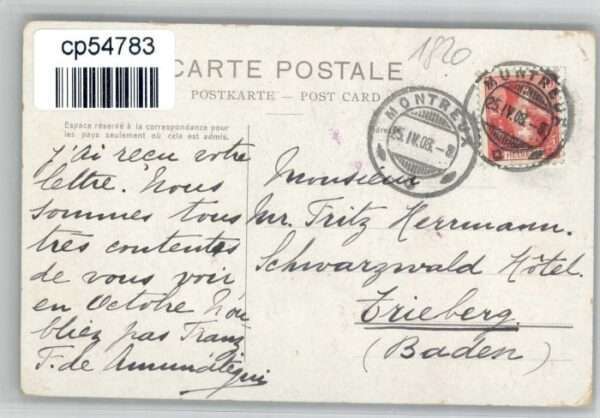 cp54783
1820
CARTE POSTALE
POSTKARTE – POST CARD
Espace réservé à la correspondance pour
les pays seulement où cela est admis.
MONTREUX
25.IV.08.–8
MONTREUX
25.IV.08.–8
j'ai reçu votre
lettre. Nous
sommes tous
très contentes
de vous voir
en Octobre N'ou
bliez pas Franz
F. de Amunátegui
Monsieur
Mr. Fritz Herrmann.
Schwarzwald Hôtel.
Trieberg.
(Baden)